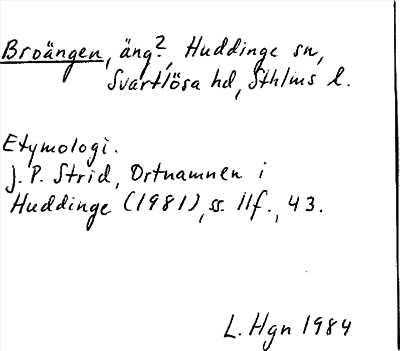 Broängen, äng?, Huddinge sn,
Svartlösa hd, Sthlms l.
Etymologi.
J. P. Strid, Ortnamnen i
Huddinge (1981), ss. 11f., 43.
L. Hgn 1984